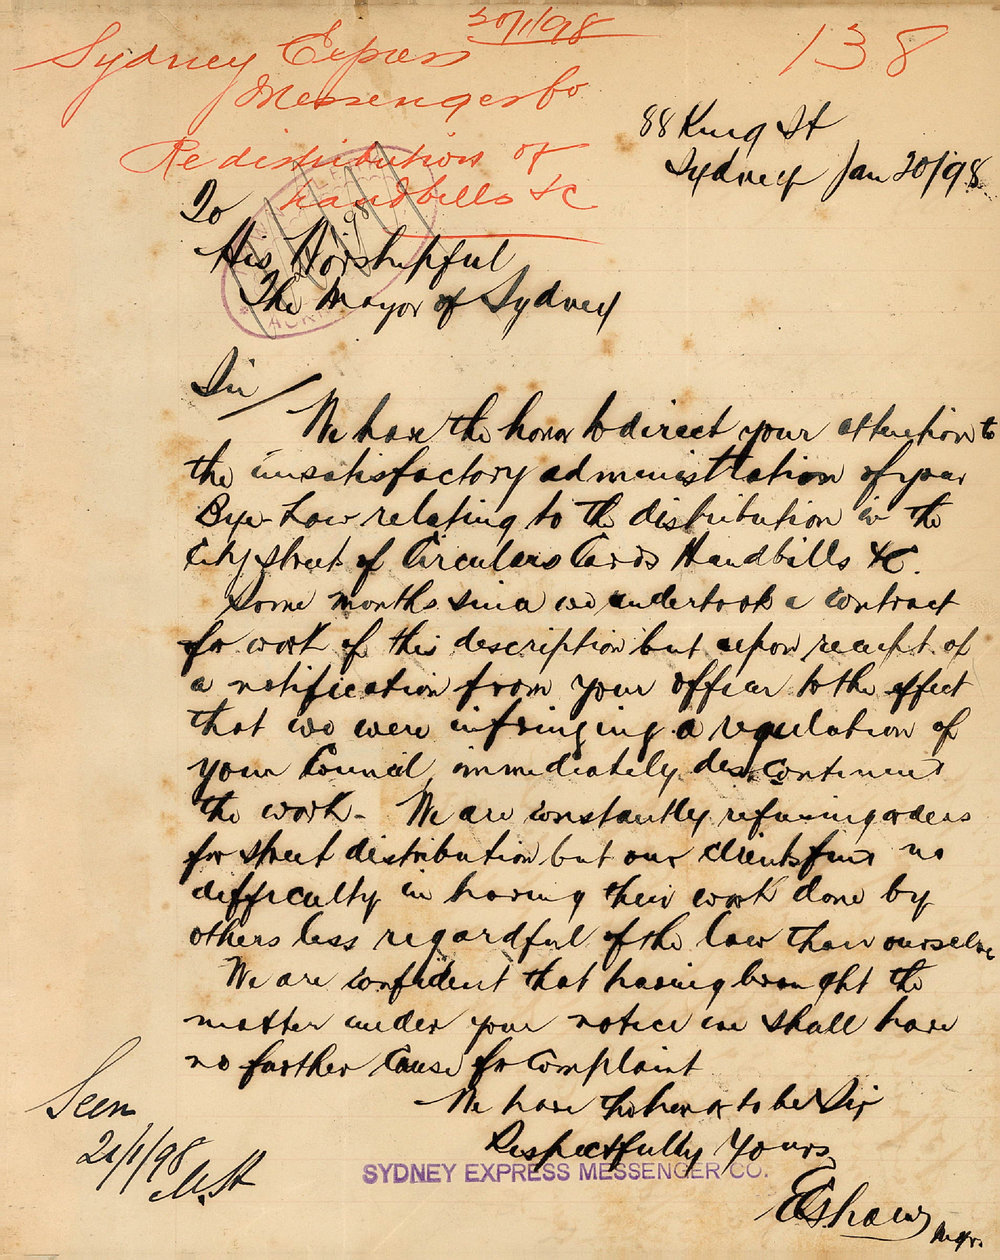 20/1/98
138
Sydney Express
Messenger Co
Re distribution of
handbills &c
88 King St
Sydney Jan 20/98
To
His Worshipful
The Mayor of Sydney
98
Sir/
We have the honor to direct your attention to
the unsatisfactory administration of your
Bye-Law relating to the distribution in the
City street of Circulars Cards Handbills &c.
Some months since we undertook a contract
for work of this description but upon receipt of
a notification from your officer to the effect
that we were infringing a regulation of
your Council, immediately discontinued
the work - We are constantly refusing orders
for street distribution but our clients find no
difficulty in having their work done by
others less regardful of the law than ourselves
We are confident that having brought the
matter under your notice we shall have
no further cause for complaint
We have the honor to be Sir
Respectfully Yours
SYDNEY EXPRESS MESSENGER CO.
Shaw
Mgr.
Seen
21/1/98